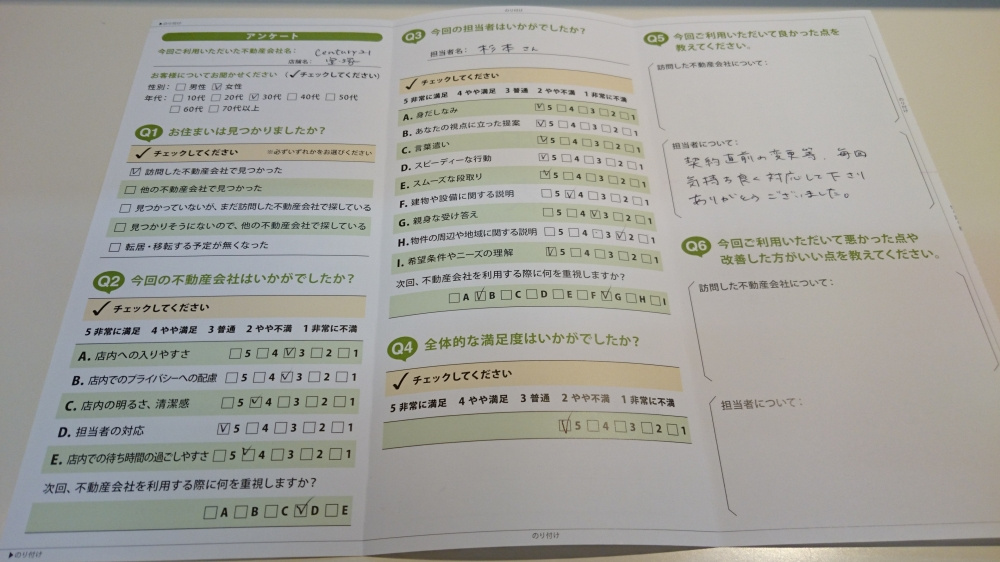 ▶のり付け
アンケート
今回ご利用いただいた不動産会社名： Century21
店舗名：
お客様についてお聞かせください （✓チェックしてください）
性別： □ 男性 ☑ 女性
年代： □ 10代 □ 20代 ☑ 30代 □ 40代 □ 50代
□ 60代 □ 70代以上
Q1 お住まいは見つかりましたか？
✓ チェックしてください ※必ずいずれかをお選びください
☑ 訪問した不動産会社で見つかった
□ 他の不動産会社で見つかった
□ 見つかっていないが、まだ訪問した不動産会社で探している
□ 見つかりそうにないので、他の不動産会社で探している
□ 転居・移転する予定が無くなった
Q2 今回の不動産会社はいかがでしたか？
✓ チェックしてください
5 非常に満足 4 やや満足 3 普通 2 やや不満 1 非常に不満
A. 店内への入りやすさ □ 5 □ 4 ☑ 3 □ 2 □ 1
B. 店内でのプライバシーへの配慮 □ 5 □ 4 ☑ 3 □ 2 □ 1
C. 店内の明るさ、清潔感 □ 5 ☑ 4 □ 3 □ 2 □ 1
D. 担当者の対応 ☑ 5 □ 4 □ 3 □ 2 □ 1
E. 店内での待ち時間の過ごしやすさ □ 5 ☑ 4 □ 3 □ 2 □ 1
次回、不動産会社を利用する際に何を重視しますか？
□ A □ B □ C ☑ D □ E
▶のり付け
のり付け
Q3 今回の担当者はいかがでしたか？
担当者名： 杉本さん
✓ チェックしてください
5 非常に満足 4 やや満足 3 普通 2 やや不満 1 非常に不満
A. 身だしなみ ☑ 5 □ 4 □ 3 □ 2 □ 1
B. あなたの視点に立った提案 ☑ 5 □ 4 □ 3 □ 2 □ 1
C. 言葉遣い ☑ 5 □ 4 □ 3 □ 2 □ 1
D. スピーディーな行動 ☑ 5 □ 4 □ 3 □ 2 □ 1
E. スムーズな段取り ☑ 5 □ 4 □ 3 □ 2 □ 1
F. 建物や設備に関する説明 □ 5 ☑ 4 □ 3 □ 2 □ 1
G. 親身な受け答え □ 5 □ 4 ☑ 3 □ 2 □ 1
H. 物件の周辺や地域に関する説明 □ 5 □ 4 □ 3 ☑ 2 □ 1
I. 希望条件やニーズの理解 ☑ 5 □ 4 □ 3 □ 2 □ 1
次回、不動産会社を利用する際に何を重視しますか？
□ A ☑ B □ C □ D □ E □ F ☑ G □ H □ I
Q4 全体的な満足度はいかがでしたか？
✓ チェックしてください
5 非常に満足 4 やや満足 3 普通 2 やや不満 1 非常に不満
☑ 5 □ 4 □ 3 □ 2 □ 1
のり付け
Q5 今回ご利用いただいて良かった点を
教えてください。
訪問した不動産会社について：
担当者について：
契約直前の変更等、毎回
気持ち良く対応して下さり
ありがとうございました。
Q6 今回ご利用いただいて悪かった点や
改善した方がいい点を教えてください。
訪問した不動産会社について：
担当者について：